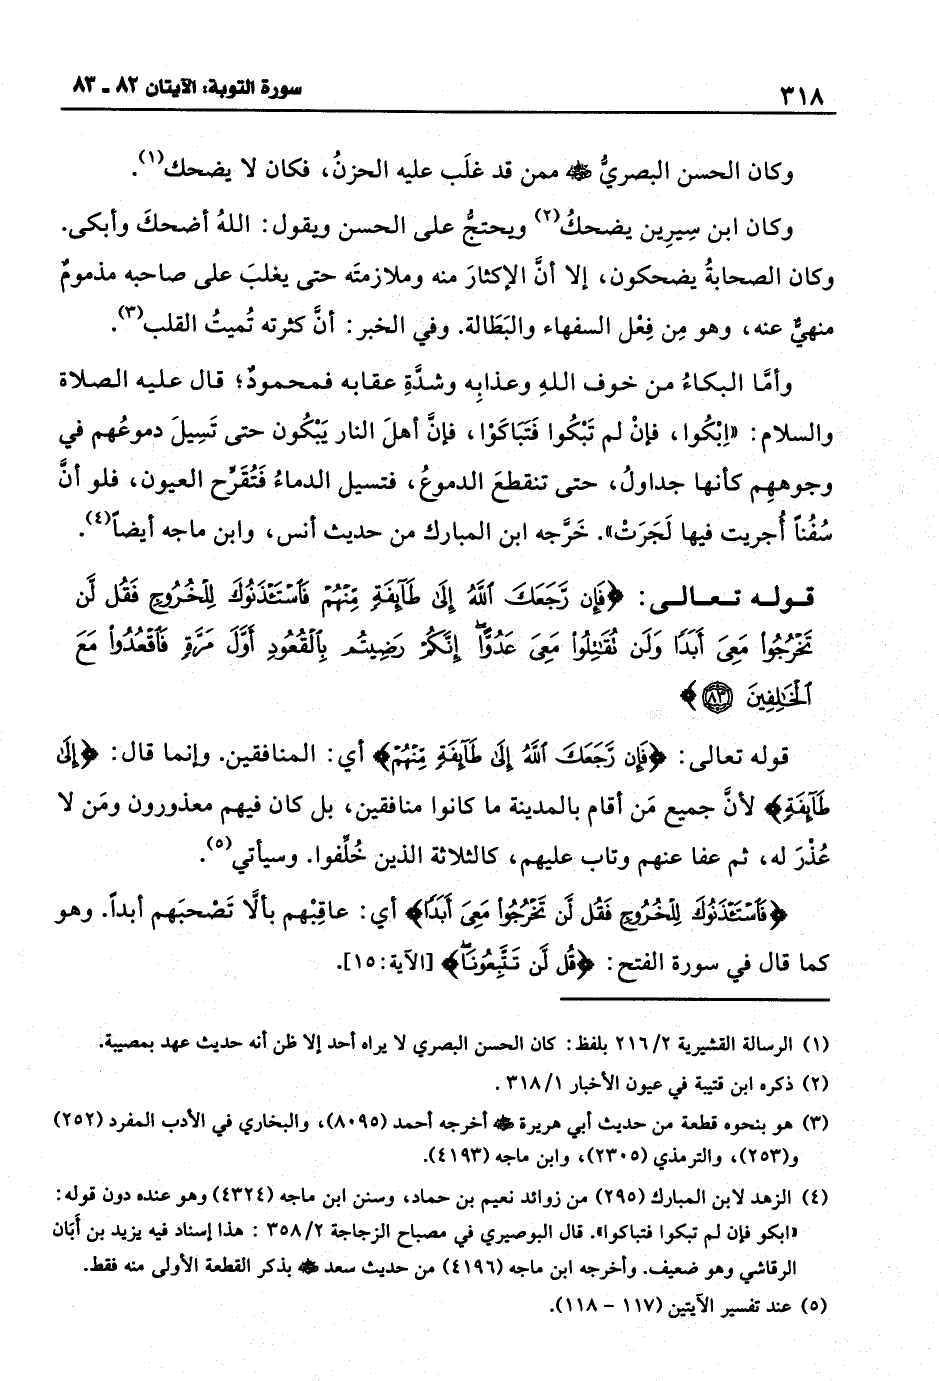 ٣١٨
سورة التوبة: الآيتان ٨٢ ـ ٨٣
وكان الحسن البصريُّ ﷺ ممن قد غلَب عليه الحزنُ، فكان لا يضحك(١).
وكان ابن سِيرِين يضحكُ(٢) ويحتجُّ على الحسن ويقول: اللهُ أضحكَ وأبكى.
وكان الصحابةُ يضحكون، إلا أنَّ الإكثارَ منه وملازمتَه حتى يغلبَ على صاحبه مذمومٌ
منهيٌّ عنه، وهو مِن فِعْل السفهاء والبَطَالة. وفي الخبر: أنَّ كثرته تُميتُ القلب(٣).
وأمَّا البكاءُ من خوف اللهِ وعذابِه وشدَّةِ عقابه فمحمودٌ؛ قال عليه الصلاة
والسلام: «اِبْكُوا، فإنْ لم تَبْكُوا فَتَبَاكَوْا، فإنَّ أهلَ النار يَبْكُون حتى تَسِيلَ دموعُهم في
وجوههِم كأنها جداولُ، حتى تنقطعَ الدموعُ، فتسيل الدماءُ فَتُقَرِّح العيون، فلو أنَّ
سُفُناً أُجريت فيها لَجَرَتْ». خَرَّجه ابن المبارك من حديث أنس، وابن ماجه أيضاً(٤).
قوله تعالى: ﴿فَإِن رَّجَعَكَ ٱللَّهُ إِلَىٰ طَآئِفَةٍ مِّنْهُمْ فَٱسْتَـْٔذَنُوكَ لِلْخُرُوجِ فَقُل لَّن
تَخْرُجُوا۟ مَعِىَ أَبَدًا وَلَن تُقَـٰتِلُوا۟ مَعِىَ عَدُوًّا ۖ إِنَّكُمْ رَضِيتُم بِٱلْقُعُودِ أَوَّلَ مَرَّةٍ فَٱقْعُدُوا۟ مَعَ
ٱلْخَـٰلِفِينَ ٨٣﴾
قوله تعالى: ﴿فَإِن رَّجَعَكَ ٱللَّهُ إِلَىٰ طَآئِفَةٍ مِّنْهُمْ﴾ أي: المنافقين. وإنما قال: ﴿إِلَىٰ
طَآئِفَةٍ﴾ لأنَّ جميع مَن أقام بالمدينة ما كانوا منافقين، بل كان فيهم معذورون ومَن لا
عُذْرَ له، ثم عفا عنهم وتاب عليهم، كالثلاثة الذين خُلِّفوا. وسيأتي(٥).
﴿فَٱسْتَـْٔذَنُوكَ لِلْخُرُوجِ فَقُل لَّن تَخْرُجُوا۟ مَعِىَ أَبَدًا﴾ أي: عاقِبْهم بألَّا تَصْحبَهم أبداً. وهو
كما قال في سورة الفتح: ﴿قُل لَّن تَتَّبِعُونَا ۖ﴾ [الآية: ١٥].
(١) الرسالة القشيرية ٢/ ٢١٦ بلفظ: كان الحسن البصري لا يراه أحد إلا ظن أنه حديث عهد بمصيبة.
(٢) ذكره ابن قتيبة في عيون الأخبار ١/ ٣١٨.
(٣) هو بنحوه قطعة من حديث أبي هريرة أخرجه أحمد (٨٠٩٥)، والبخاري في الأدب المفرد (٢٥٢)
و(٢٥٣)، والترمذي (٢٣٠٥)، وابن ماجه (٤١٩٣).
(٤) الزهد لابن المبارك (٢٩٥) من زوائد نعيم بن حماد، وسنن ابن ماجه (٤٣٢٤) وهو عنده دون قوله:
«ابكو فإن لم تبكوا فتباكوا». قال البوصيري في مصباح الزجاجة ٢/ ٣٥٨ : هذا إسناد فيه يزيد بن أَبَان
الرقاشي وهو ضعيف. وأخرجه ابن ماجه (٤١٩٦) من حديث سعد بذكر القطعة الأولى منه فقط.
(٥) عند تفسير الآيتين (١١٧ - ١١٨).